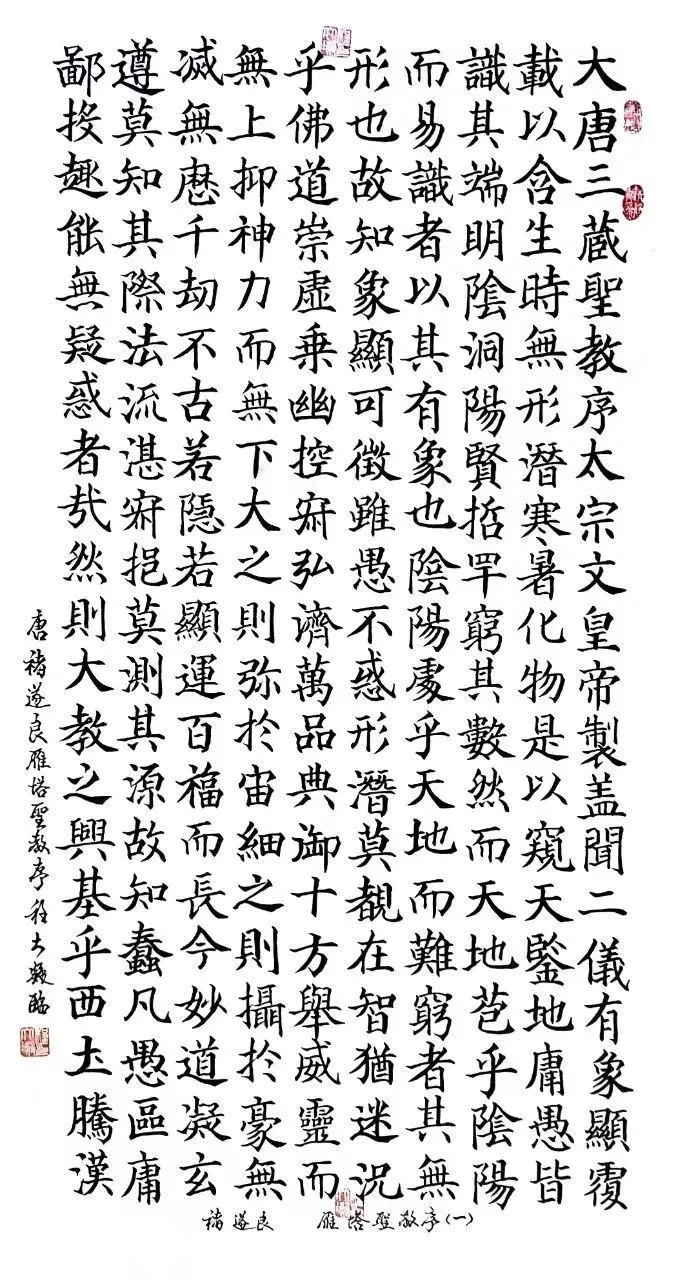 大唐三蔵聖教序太宗文皇帝製盖聞二儀有象顯覆
載以含生時無形潛寒暑化物是以窺天鑒地庸愚皆
識其端明陰洞陽賢哲罕窮其數然而天地苞乎陰陽
而易識者以其有象也陰陽處乎天地而難窮者其無
形也故知象顯可徵雖愚不惑形潛莫覩在智猶迷況
乎佛道崇虛乗幽控寂弘濟萬品典御十方舉威靈而
無上抑神力而無下大之則弥於宙細之則攝於豪無
滅無歷千劫不古若隱若顯運百福而長今妙道凝玄
遵莫知其際法流湛寂挹莫測其源故知蠢凡愚區庸
鄙投趣能無疑惑者哉然則大教之興基乎西土騰漢
唐褚遂良雁塔聖教序程大臨
褚遂良 雁塔聖教序(一)